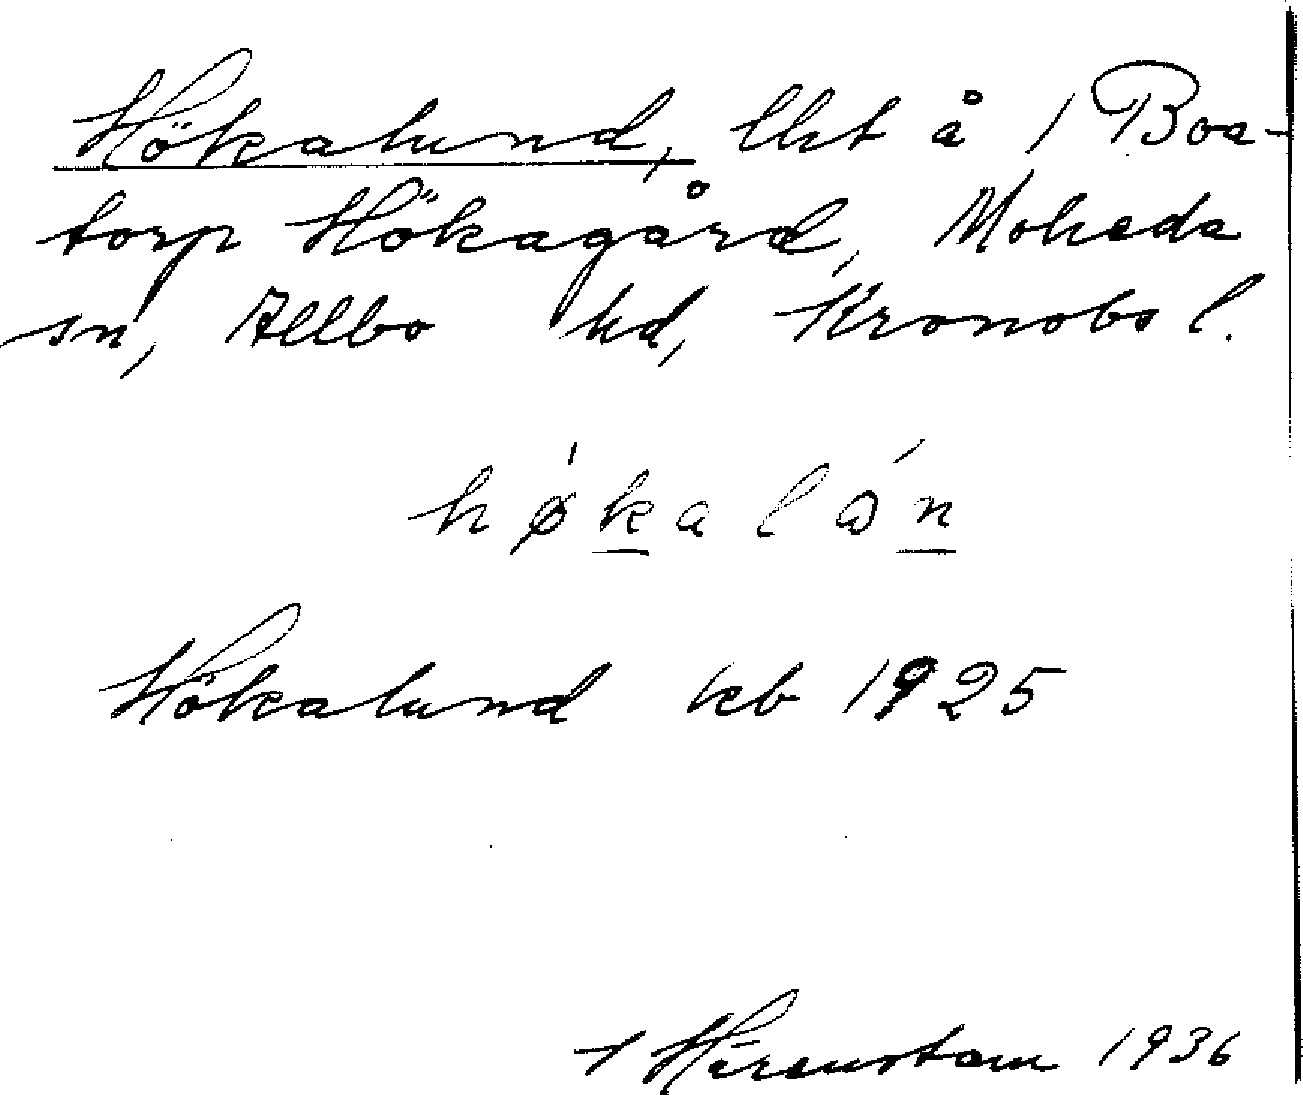 Hökalund, lht å 1 Boa-
torp Hökagård, Moheda
sn, Allbo hd, Kronobs l.
høkalón
Hökalund kb 1925
1936